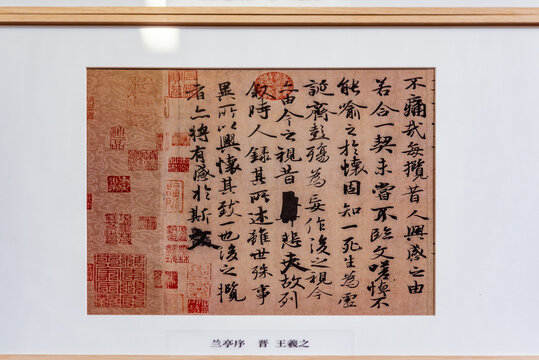 不痛哉每攬昔人興感之由
若合一契未嘗不臨文嗟悼不
能喻之於懷固知一死生為虛
誕齊彭殤為妄作後之視今
由今之視昔 悲夫故列
敘時人錄其所述雖世殊事
異所以興懷其致一也後之攬
者亦將有感於斯文
兰亭序 晋 王羲之